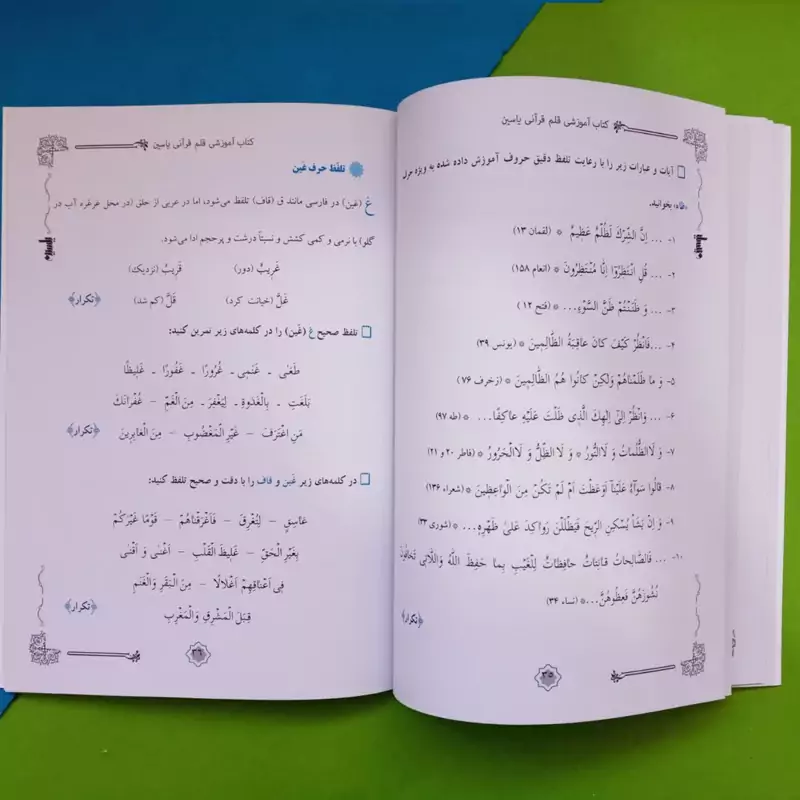 کتاب آموزشی قلم قرآنی یاسین
آیات و عبارات زیر را با رعایت تلفظ دقیق حروف آموزش داده شده به ویژه حرف
«ظاء» بخوانید.
۱- ... إِنَّ الشِّرْكَ لَظُلْمٌ عَظِيمٌ * (لقمان ۱۳)
۲- ... قُلِ انْتَظِرُوا إِنَّا مُنْتَظِرُونَ * (انعام ۱۵۸)
۳- ... وَ ظَنَنْتُمْ ظَنَّ السَّوْءِ... * (فتح ۱۲)
۴- ...فَانْظُرْ كَيْفَ كانَ عاقِبَةُ الظَّالِمِينَ * (یونس ۳۹)
۵- وَ ما ظَلَمْناهُمْ وَلكِنْ كانُوا هُمُ الظَّالِمِينَ * (زخرف ۷۶)
۶- ... وَانْظُرْ اِلىٰ اِلهِكَ الَّذِى ظَلْتَ عَلَيْهِ عاكِفًا... * (طه ۹۷)
۷- وَ لَا الظُّلُماتُ وَ لَا النُّورُ * وَ لَا الظِّلُّ وَ لَا الْحَرُورُ * (فاطر ۲۰ و ۲۱)
۸- قالُوا سَوَآءٌ عَلَيْنآ اَوَعَظْتَ اَمْ لَمْ تَكُنْ مِنَ الْواعِظِينَ * (شعراء ۱۳۶)
۹- وَ اِنْ يَشَأْ يُسْكِنِ الرِّيحَ فَيَظْلَلْنَ رَواكِدَ عَلىٰ ظَهْرِهِ... * (شوری ۳۳)
۱۰- ... فَالصَّالِحاتُ قانِتاتٌ حافِظاتٌ لِلْغَيْبِ بِما حَفِظَ اللهُ وَاللَّاتِى تَخافُونَ
نُشُوزَهُنَّ فَعِظُوهُنَّ...* (نساء ۳۴)
﴿تکرار﴾
۳۵
کتاب آموزشی قلم قرآنی یاسین
تلفظ حرف غَین
غ (غین) در فارسی مانند ق (قاف) تلفظ می‌شود، اما در عربی از حلق (در محل غرغره آب در
گلو) با نرمی و کمی کشش و نسبتاً درشت و پرحجم ادا می‌شود.
غَرِيبٌ (دور) قَرِيبٌ (نزدیک)
غَلَّ (خیانت کرد) قَلَّ (کم شد) ﴿تکرار﴾
تلفظ صحیح غ (غَین) را در کلمه‌های زیر تمرین کنید:
طَغىٰ ـ غَنَمِى ـ غُرُورًا ـ غَفُورًا ـ غَلِيظًا
بَلَغَتِ ـ بِالْغُدْوَةِ ـ لِيَغْفِرَ ـ مِنَ الْغَمِّ – غُفْرانَكَ
مَنِ اغْتَرَفَ – غَيْرِ الْمَغْضُوبِ – مِنَ الْغابِرِينَ ﴿تکرار﴾
در کلمه‌های زیر غَین و قاف را با دقت و صحیح تلفظ کنید:
غاسِقٍ – لِتُغْرِقَ – فَاَغْرَقْناهُمْ – قَوْمًا غَيْرَكُمْ
بِغَيْرِ الْحَقِّ – غَلِيظَ الْقَلْبِ – اَغْنىٰ وَ اَقْنىٰ
فِى اَعْناقِهِمْ اَغْلالًا – مِنَ الْبَقَرِ وَالْغَنَمِ
قِبَلَ الْمَشْرِقِ وَ الْمَغْرِبِ ﴿تکرار﴾
۳۶